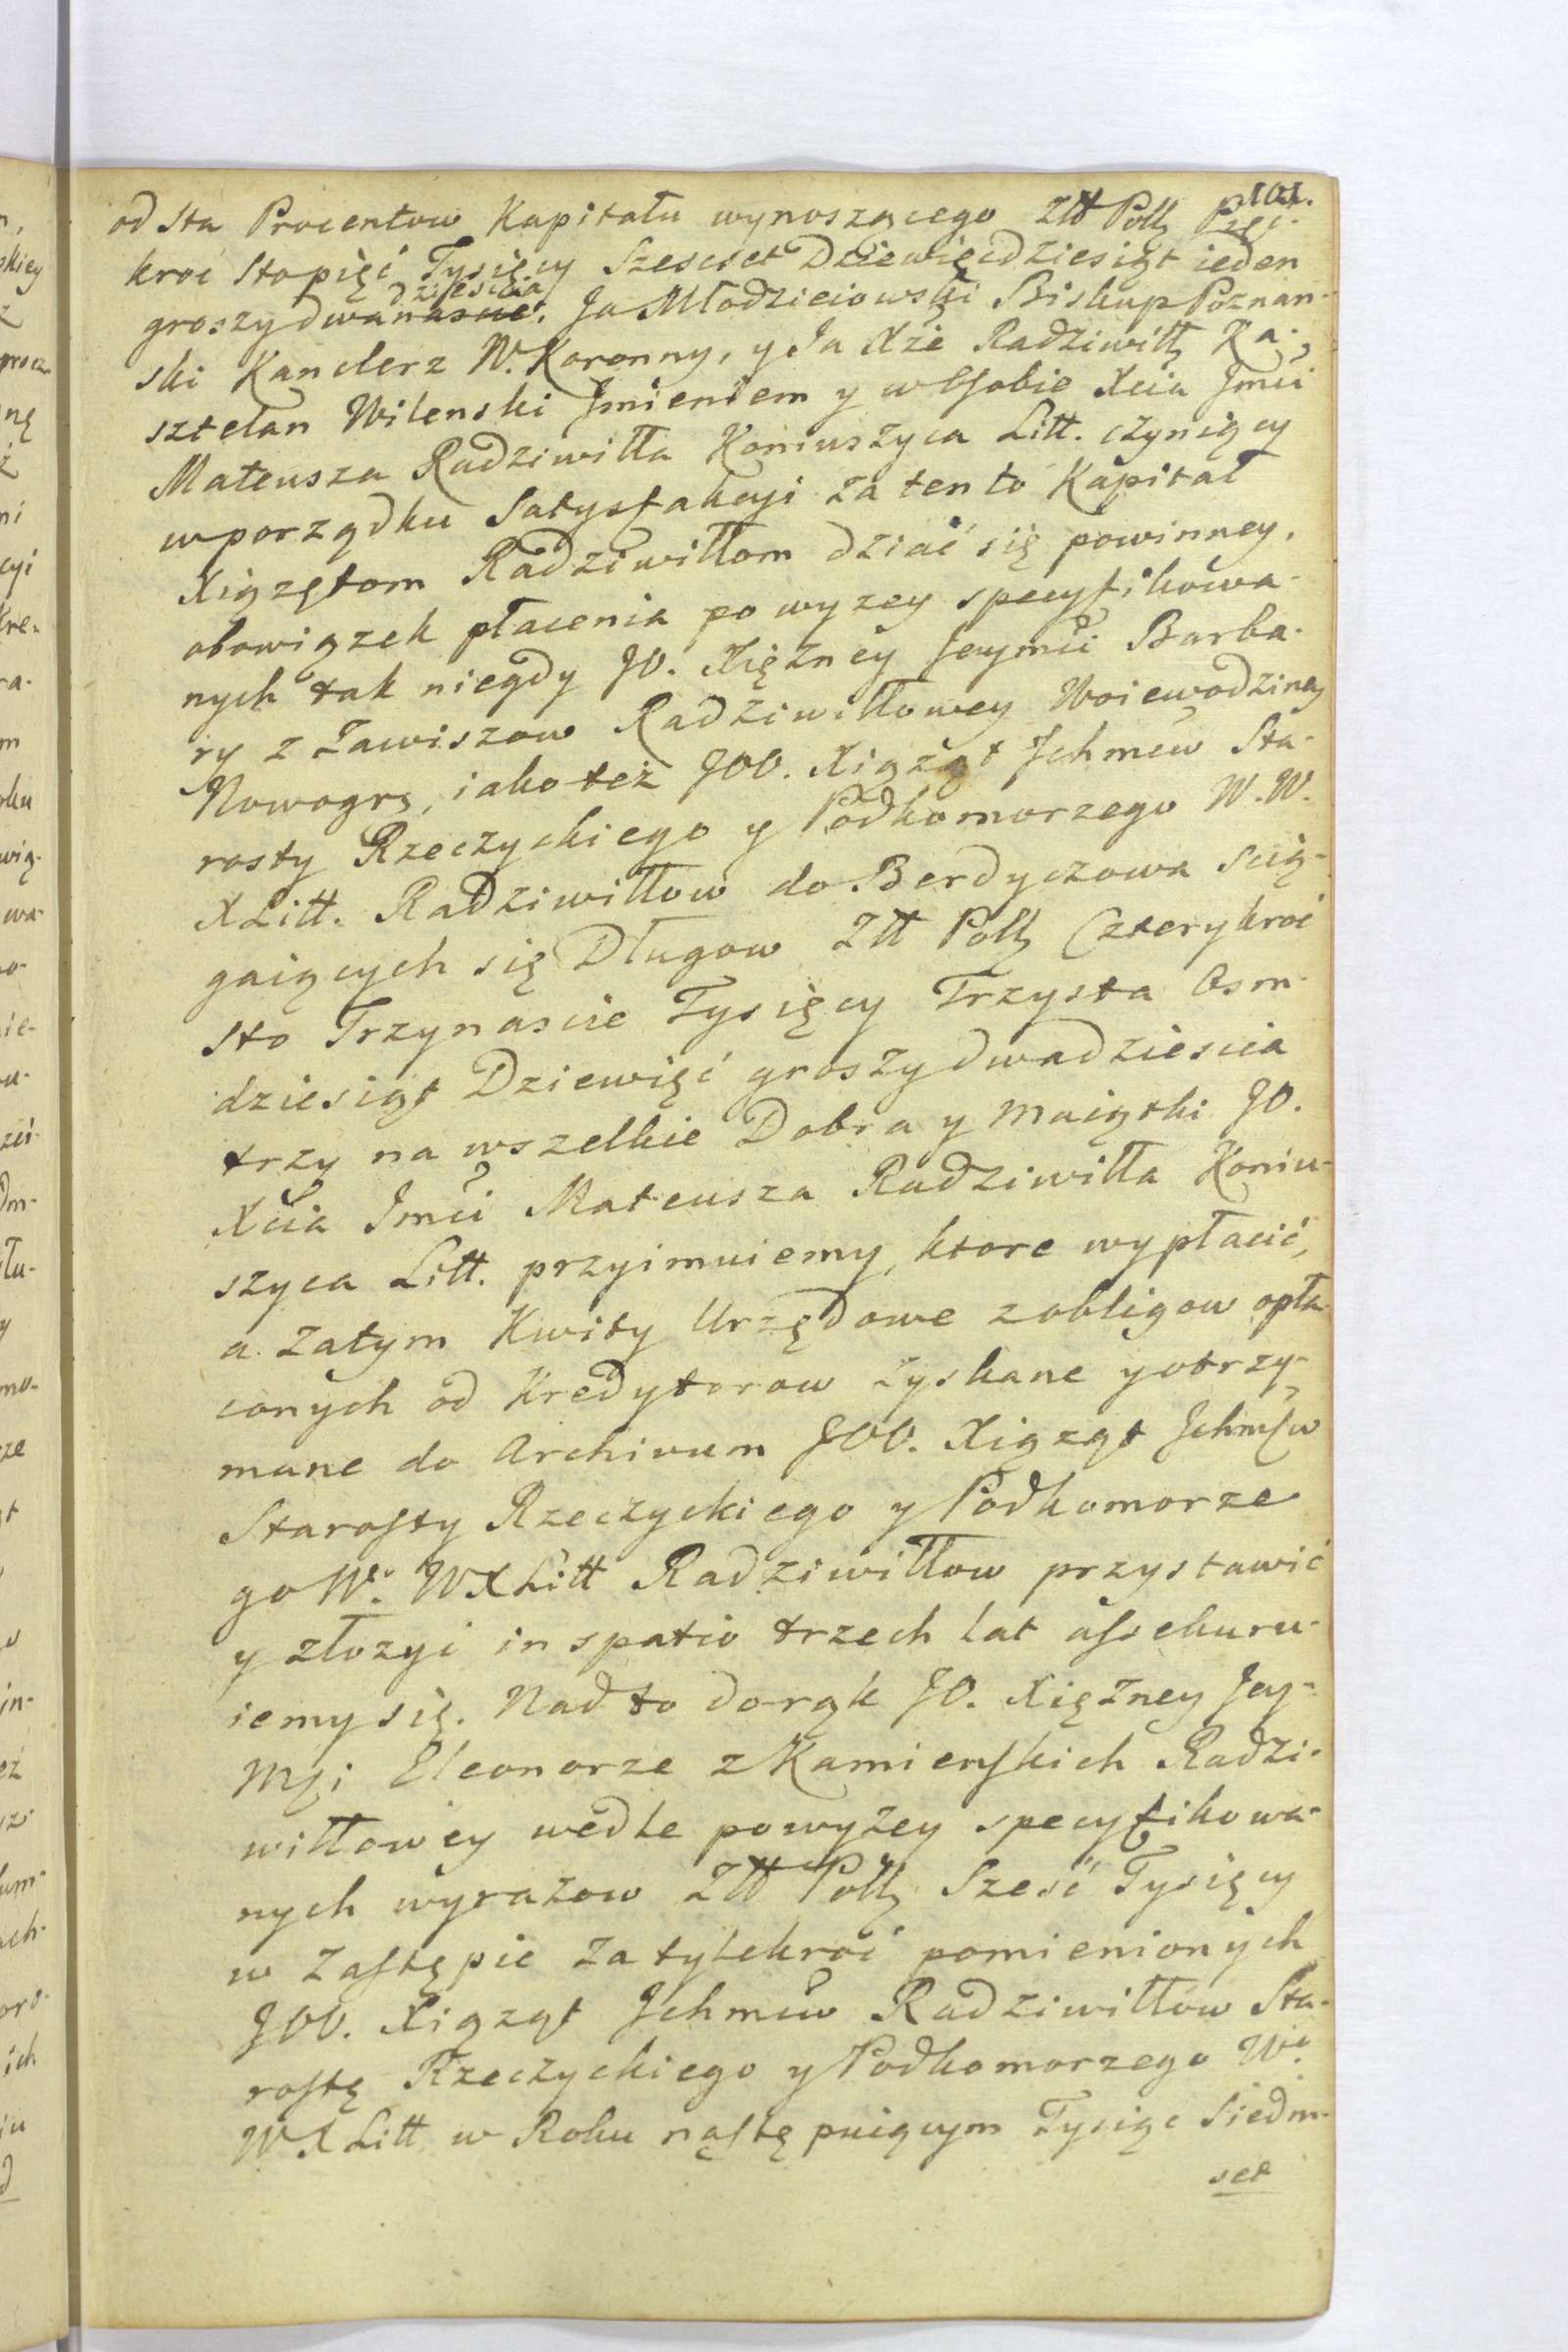 101.
od Sta Procentow Kapitału wynoszącego Złł Poll Pięć-
kroć Stopięć Tysięcy Szescset Dziewięcdziesiąt ieden
groszy dwanascie dziesicia. Ja Młodzieiowski Biskup Poznan-
ski Kanclerz W. Koronny, y Ja Xże Radziwiłł Ka-
sztelan Wilenski Jmieniem y w Osobie Xcia Jmci
Mateusza Radziwiłła Koniuszyca Litt. czyniący
w porządku Satysfakcyi za ten to Kapitał
Xiązętom Radziwiłłom dziać się powinney,
obowiązek płacenia powyzey specyfikowa-
nych tak niegdy JO. Xięzney Jeymci Barba-
ry z Zawiszow Radziwiłłowey Woiewodziney
Nowogrs, iako też JOO. Xiąząt Jchmcw Sta-
rosty Rzeczyckiego y Podkomorzego W. W.
X Litt. Radziwiłłow do Berdyczowa scią-
gaiących się Długow Złł Poll Czterykroć
Sto Trzynascie Tysięcy Trzysta Osm-
dziesiąt Dziewięć groszy dwadziescia
trzy na wszelkie Dobra y maiątki JO.
Xcia Jmci Mateusza Radziwiłła Koniu-
szyca Litt. przyimuiemy, ktore wypłacić,
a zatym Kwity Urzędowe z obligow opła-
conych od Kredytorow zyskane y otrzy-
mane do Archivum JOO. Xiąząt Jchmcw
Starosty Rzeczyckiego y Podkomorze
go Wo. WXLitt Radziwiłłow przystawić
y złozyć in spatio trzech lat assekuru-
iemy się. Nad to do rąk JO. Xięzney Jey-
Mci Eleonorze z Kamienskich Radzi-
wiłłowey wedle powyżey specyfikowa-
nych wyrazow Złł Poll Szesć Tysięcy
w Zastępie za tylekroć pomienionych
JOO. Xiąząt Jchmcw Radziwiłłow Sta-
rostę Rzeczyckiego y Podkomorzego Wo.
WXLitt w Roku następuiącym Tysiąc Siedm-
set